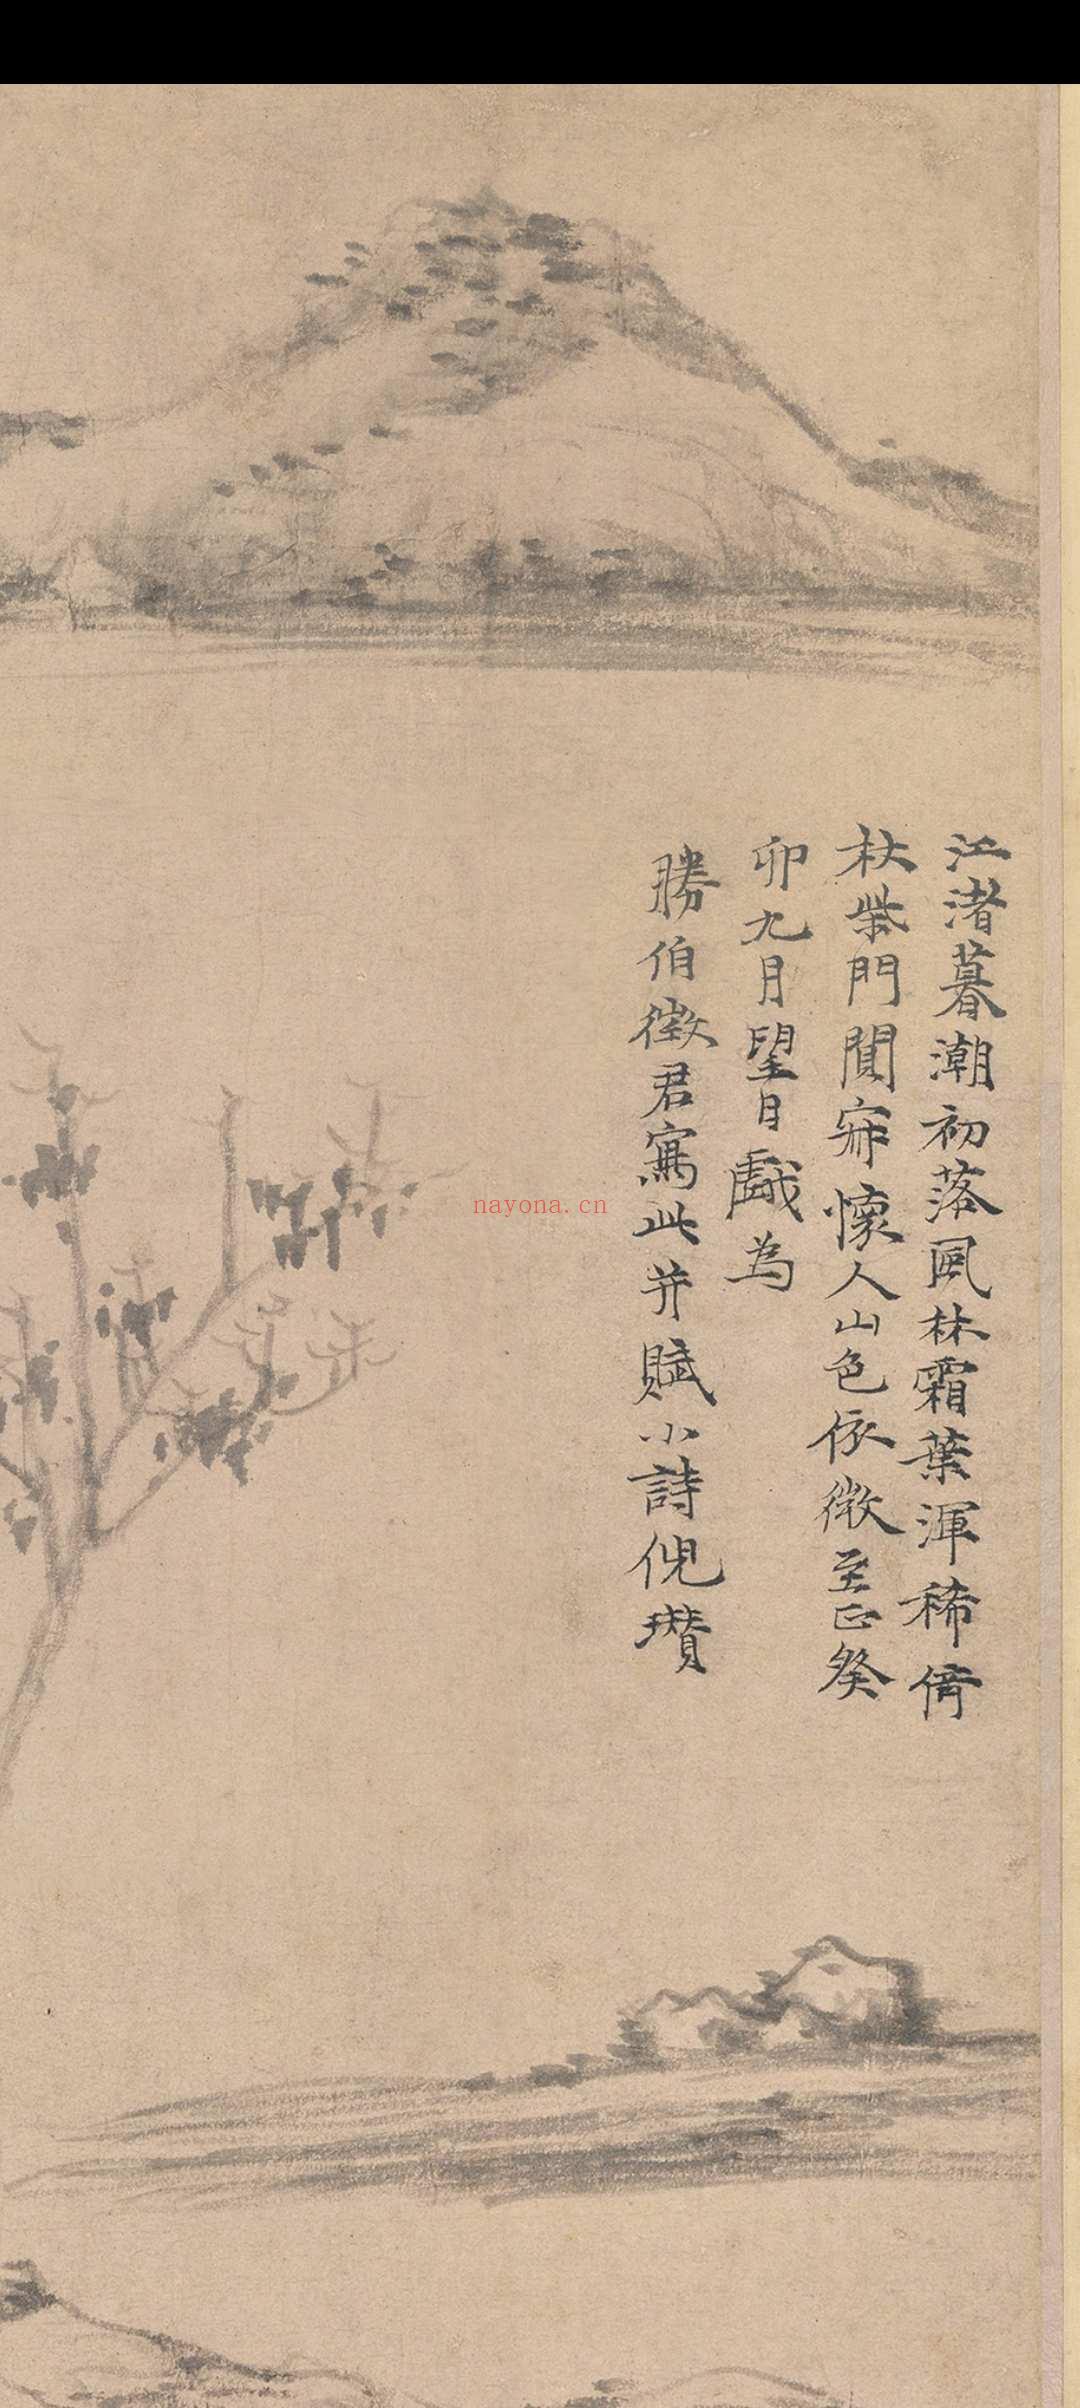 江渚暮潮初落風林霜葉渾稀倚
杖柴門閴寂懷人山色依微至正癸
卯九月望日戱為
勝伯徵君寫此并賦小詩倪瓚
nayona.cn